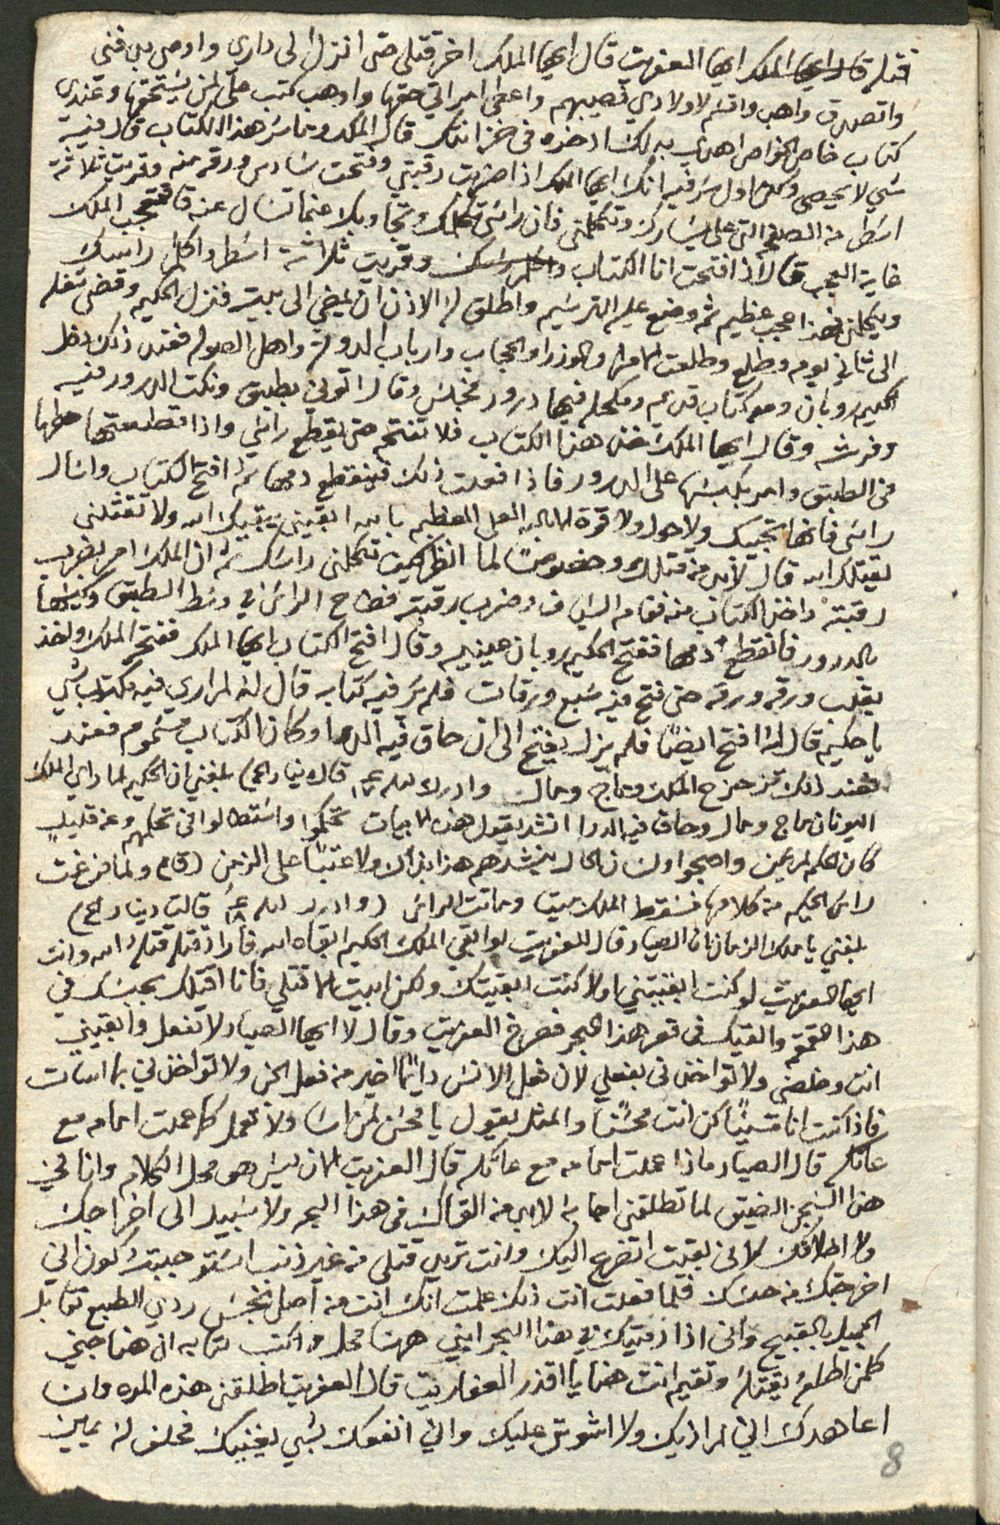 قتله قال ايها الملك ايها العفريت قال ايها الملك اخر قتلي حتى انزل الى داري واوصي بدفني
واتصدق واهب واقسم لاولادي نصيبهم واعطي امراتي حقها واوهب كتب حتى لمن يستحقها وعندي
كتاب خاص الخواص اهديه لك ادخره في خزانتك قال الملك وما سر هذا الكتاب قال فيه
شي لا يحصى ولكن اول سر فيه انك ايها الملك اذا ضربت رقبتي وفتحت سادس ورقه منه وقريت ثلاثة
اسطر من الصفحه التي على يسارك وتكلمني فان راسي تكلمك وتجاوبك عنما تسال عنه قال فتعجب الملك
غاية العجب قال اذا فتحت انا الكتاب وقريت ثلاثة اسطر واكلم راسك
وتكلمني فهذا عجب عظيم ثم وضع عليه الترسيم واطلق له الاذن ان يمضي الى بيته فنزل الحكيم وقضى شغله
الى ثاني يوم وطلع وطلعت الامرا والوزرا والحجاب وارباب الدوله واهل الصوله فعند ذلك دخل
الحكيم رويان ومعه كتاب قديم ومكحله فيها درور فجلس وقال اتوني بطبق ونكت الدرور فيه
وفرشه وقال ايها الملك خذ هذا الكتاب فلا تفتحه حتى يقطع راسي واذا قطعتها حطها
في الطبق وامر بكبسها على الدرور فاذا فعلت ذلك فينقطع دمها ثم افتح الكتاب واسال
راسي فانها تجيبك ولا حول ولا قوة الا بالله العلي العظيم بالله ابقيني يبقيك الله ولا تقتلني
يقتلك الله قال لابد من قتلك وخصوصا لما انظر كيف تكلمني راسك ثم ان الملك امر بضرب
رقبته واخذ الكتاب منه فقام السياف وضرب رقبته فطاح الراس في وسط الطبق وكبسها
بالدرور فانقطع دمها ففتح الحكيم رويان عينيه وقال افتح الكتاب ايها الملك ففتح الملك واخذ
يقلب ورقه ورقه حتى فتح فيه سبع ورقات فلم ير فيه كتابه قال له لم اري فيه مكتوب شي
يا حكيم قال له افتح ايضا فلم يزل يفتح الى ان حاق فيه الدوا وكان الكتاب مسموم فعند
فعند ذلك تزحزح الملك وماج ومال وادرك قال دينارزاد بلغني ان الحكيم لما راي الملك
اليونان ماج ومال وحاق فيه الدوا انشد يقول هذه الابيات تحكموا واستطالوا في تحكمهم وعن قليل
كان الحكم لم يكن واصبحوا ولسان الحال ينشدهم هذا بذاك ولا عتبا على الزمن ولما فرغت
راس الحكيم من كلامها فسقط الملك ميت وماتت الراس وادرك قالت دينارزاد
بلغني يا ملك الزمان ان الصياد قال للعفريت لو ابقي الملك الحكيم ابقاه الله فاراد قتله قتله الله وانت
ايها العفريت لو كنت ابقيتني اولا كنت ابقيتك ولكن ابيت الا قتلي فانا اقتلك بحبسك في
هذا القمقم والقيك في قعر هذا البحر فصرخ العفريت وقال لا ايها الصياد لا تفعل وابقيني
انت وخلصني ولا تواخذني بفعلي لان فعل الانس دائما خير من فعل الجن ولا تواخذني بما اسات
فاذا كنت انا مسيئا كن انت محسنا والمثل يقول يا محسن لمن اسا ولا تعمل كما عملت امامه مع
عاتكه قال الصياد وماذا عملت امامه مع عاتكه قال العفريت الان ليس هو محل الكلام وانا في
هذا السجن الضيق لما تطلقني احكي لك لابد من القاك في هذا البحر ولا سبيل الى اخراجك
ولا اطلاقك لاني بقيت اتضرع اليك وانت تريد قتلي من غير ذنب استوجبته كون اني
اخرجتك من حبسك فلما فعلت انت ذلك علمت انك انت من اصل نجس ردي الطبع تقابل
الجميل بالقبيح واني اذا رميتك في هذا البحر ابني ههنا محل واكتب كتابه ان هنا جني
كلمن اطلعه يقتله وتقيم انت هنا يا اقذر العفاريت قال العفريت اطلقني هذه المره وانا
اعاهدك اني لم اذيك ولا اشوش عليك واني انفعك بشي يغنيك فحلف له يمين
8